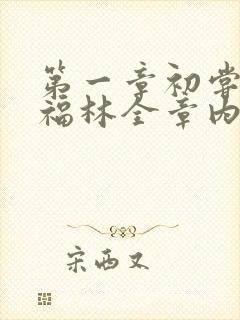 第一章初尝
福林全章内
宋西又